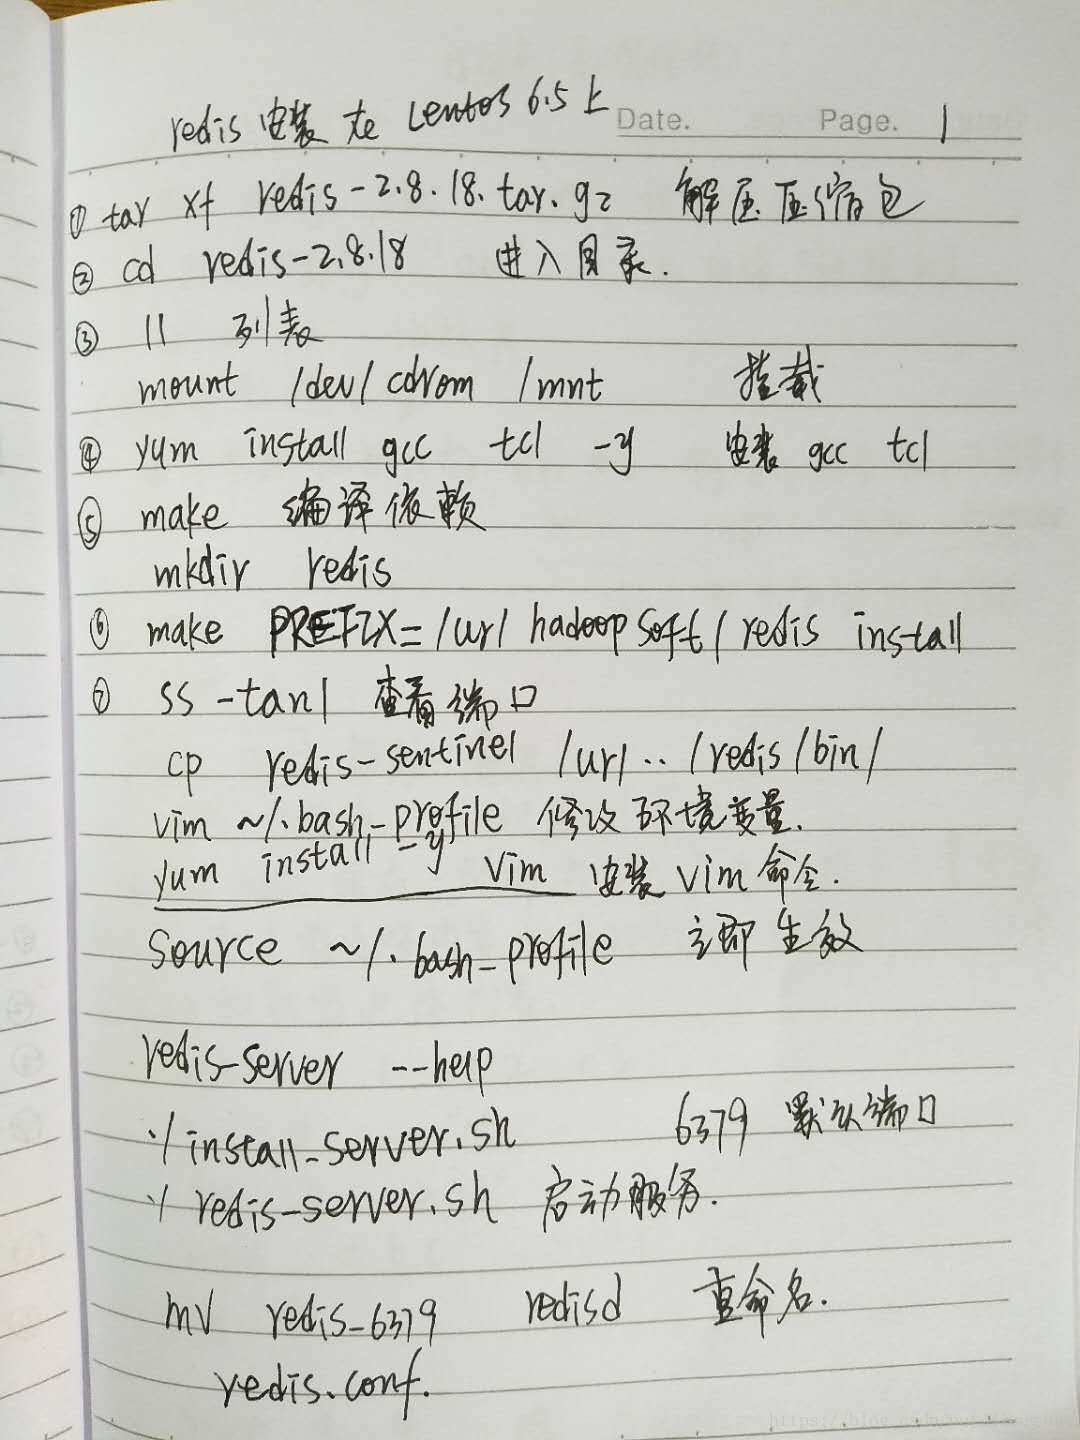 redis 安装在 Centos 6.5 上
Date. Page. 1
① tar xf redis-2.8.18.tar.gz 解压压缩包
② cd redis-2.8.18 进入目录.
③ ll 列表
mount /dev/cdrom /mnt 挂载
④ yum install gcc tcl -y 安装 gcc tcl
⑤ make 编译依赖
mkdir redis
⑥ make PREFIX=/url hadoopsoft/redis install
⑦ ss -tanl 查看端口
cp redis-sentinel /url .. /redis/bin/
vim ~/.bash_profile 修改环境变量.
yum install -y vim 安装 vim 命令.
source ~/.bash_profile 立即生效
redis-server --help
./install_server.sh 6379 默认端口
./redis-server.sh 启动服务.
mv redis_6379 redisd 重命名.
redis.conf.